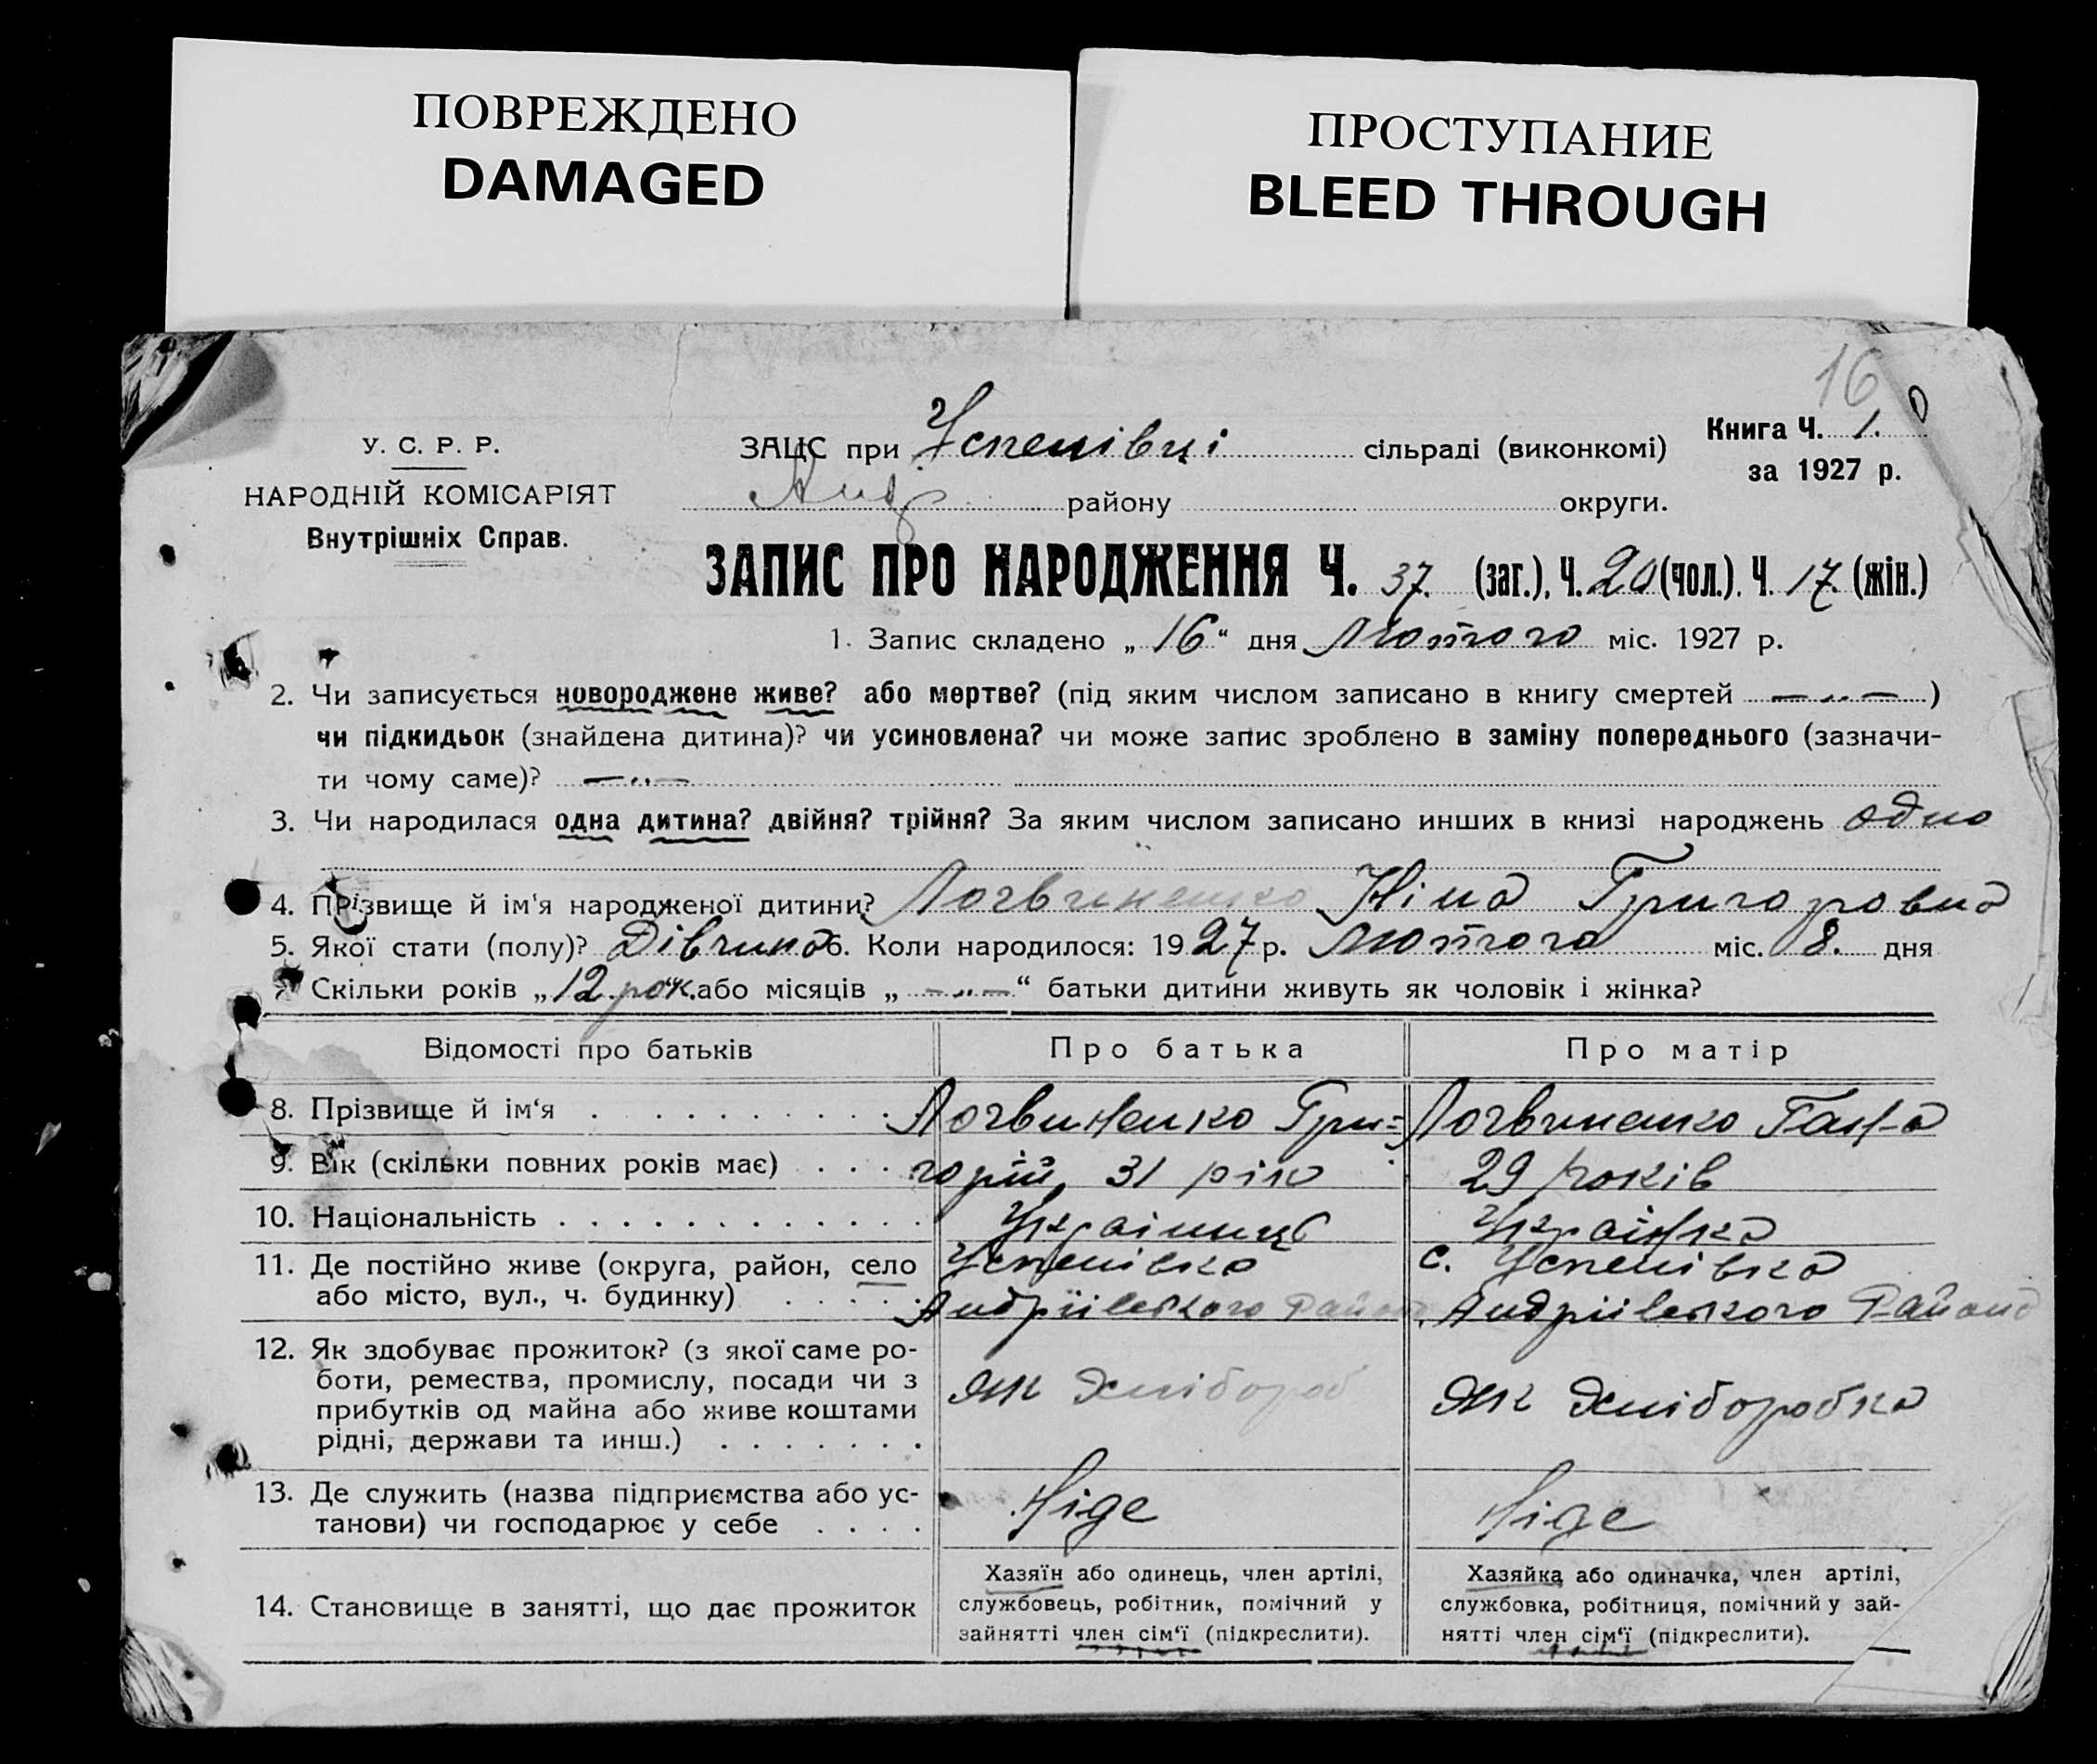 ПОВРЕЖДЕНО
DAMAGED
ПРОСТУПАНИЕ
BLEED THROUGH
16
У. С. Р. Р.
НАРОДНІЙ КОМІСАРІЯТ
Внутрішніх Справ.
ЗАЦС при Успенівці сільраді (виконкомі)
Книга Ч. 1.
за 1927 р.
Анд району округи.
ЗАПИС ПРО НАРОДЖЕННЯ Ч. 37. (заг.), Ч. 20 (чол.). Ч. 17. (жін.)
1. Запис складено „16“ дня Лютого міс. 1927 р.
2. Чи записується новороджене живе? або мертве? (під яким числом записано в книгу смертей — „ — )
чи підкидьок (знайдена дитина)? чи усиновлена? чи може запис зроблено в заміну попереднього (зазначи-
ти чому саме)? — „ —
3. Чи народилася одна дитина? двійня? трійня? За яким числом записано инших в книзі народжень одно
4. Прізвище й ім'я народженої дитини? Логвиненко Ніна Григоровна
5. Якої стати (полу)? Дівчина 6. Коли народилося: 1927 р. Лютого міс. 8. дня
7. Скільки років „12 рок.“ або місяців „— „ —“ батьки дитини живуть як чоловік і жінка?
Відомості про батьків
Про батька
Про матір
8. Прізвище й ім'я . . . . . . . . . . Логвиненко Гри- Логвиненко Ганна
9. Вік (скільки повних років має) . . . горій, 31 рік 29 років
10. Національність . . . . . . . . . . . . Українець Українка
11. Де постійно живе (округа, район, село Успенівка с. Успенівка
або місто, вул., ч. будинку) . . . . . Андріївського Району Андріївського Району
12. Як здобуває прожиток? (з якої саме ро-
боти, ремества, промислу, посади чи з
прибутків од майна або живе коштами
рідні, держави та инш.) . . . . . . .
як хлібороб
як хліборобка
13. Де служить (назва підприємства або ус-
танови) чи господарює у себе . . . .
Ніде
Ніде
14. Становище в занятті, що дає прожиток
Хазяїн або одинець, член артілі,
службовець, робітник, помічний у
зайнятті член сім'ї (підкреслити).
Хазяйка або одиначка, член артілі,
службовка, робітниця, помічний у зай-
нятті член сім'ї (підкреслити).